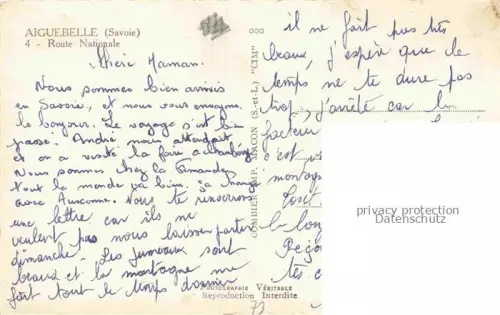 AIGUEBELLE (Savoie)
4 - Route Nationale
Chère Maman.
Nous sommes bien arrivés
en Savoie, et nous vous envoyons
le bonjour. Le voyage s'est bien
passé. André nous attendait
et on a visité la foire
Nous sommes chez la
tout le monde va bien. ça change
avec Auxonne. Nous te renverrons
une lettre car ils ne
veulent pas nous laisser partir
dimanche. Les jumeaux sont
beaux et la montagne me
fait tout le temps dormir
COMBIER IMP. MACON (S.-et-L.) "CIM"
PHOTOGRAPHIE VÉRITABLE
Reproduction Interdite
73
il ne fait pas très
beau, j'espère que le
temps ne te dure pas
trop, j'arrête car le
facteur
c'est
montagn
Tout
le bon
tes
privacy protection
Datenschutz